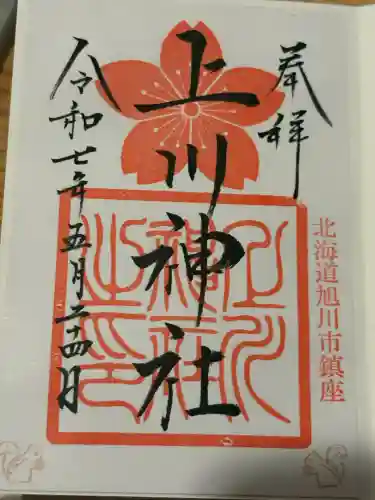 奉拝
北海道旭川市鎮座
上川神社
令和七年五月二十四日
上川神社之印